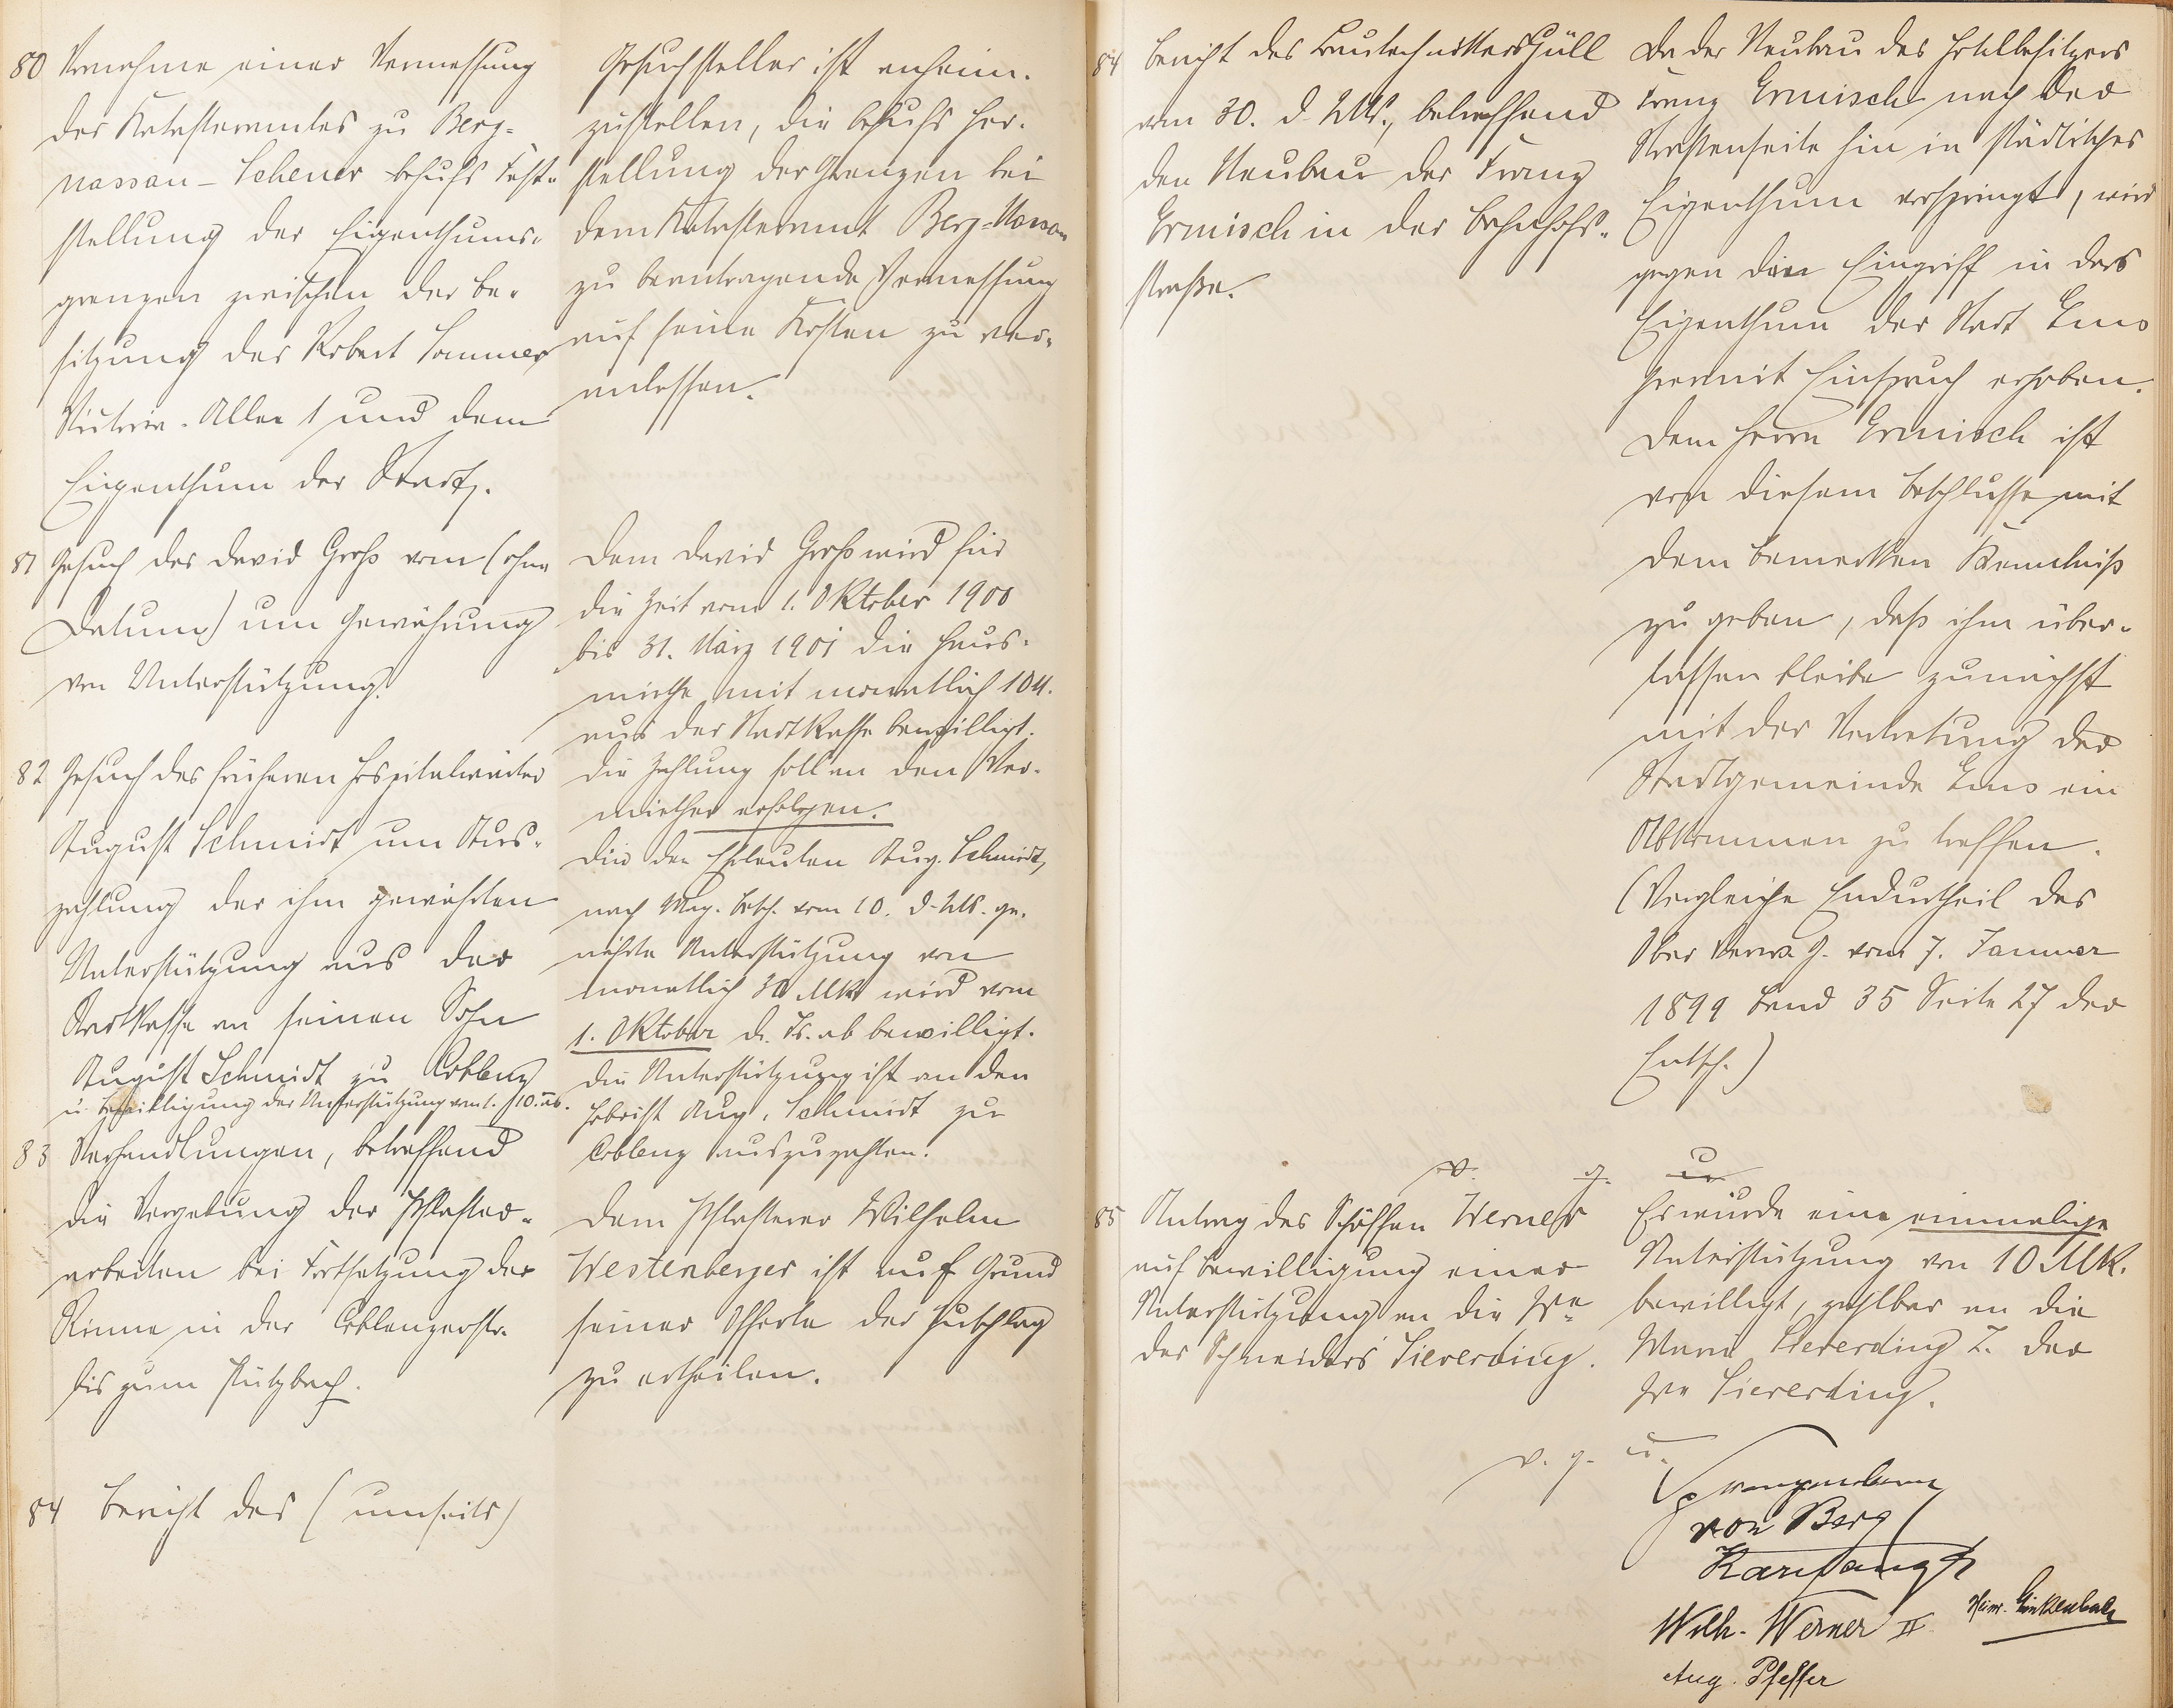 80 Vornahme einer Vermessung
des Katasteramtes zu Berg-
nassau-Scheuer behufs Fest-
stellung der Eigenthums-
grenzen zwischen der Be-
sitzung des Robert Sommer
Victoria-Allee 1 und dem
Eigenthum der Stadt.
Gesuchsteller ist anheim-
zustellen, die behufs Her-
stellung der Grenzen bei
dem Katasteramt Berg-Nassau
zu beantragende Vermessung
auf seine Kosten zu ver-
anlassen.
81 Gesuch des David Groß vom (ohne
Datum) um Gewährung
von Unterstützung.
Dem David Groß wird für
die Zeit vom 1. Oktober 1900
bis 31. März 1901 die Haus-
miethe mit monatlich 10 M.
aus der Stadtkasse bewilligt.
Die Zahlung soll an den Ver-
miether erfolgen.
82 Gesuch des früheren Hospitalwärter
August Schmidt um Aus-
zahlung der ihm gewährten
Unterstützung aus der
Stadtkasse an seinen Sohn
August Schmidt zu Coblenz
u. Bewilligung der Unterstützung vom 1./10. ab.
Die den Eheleuten Aug. Schmidt,
nach Mag. Besch. vom 10. d. Mts. ge-
währte Unterstützung von
monatlich 30 Mk wird vom
1. Oktober d. Js. ab bewilligt.
Die Unterstützung ist an den
Hoboist Aug. Schmidt zu
Coblenz auszuzahlen.
83 Verhandlungen, betreffend
die Vergebung der Pflaster-
arbeiten bei Fortsetzung der
Rinne in der Coblenzerstr.
bis zum Pützbach.
Dem Pflasterer Wilhelm
Westenberger ist auf Grund
seiner Offerte der Zuschlag
zu ertheilen.
84 Bericht des (umseits)
84 Bericht des Bautechnikers Hüll
vom 30. d. Mts., betreffend
den Neubau des Franz
Ermisch in der Bahnhof-
straße.
Da der Neubau des Hotelbesitzers
Franz Ermisch nach der
Straßenseite hin in städtisches
Eigenthum vorspringt, wird
gegen den Eingriff in das
Eigenthum der Stadt Ems
hiermit Einspruch erhoben.
Dem Herrn Ermisch ist
von diesem Beschlusse mit
dem Bemerken Kenntniß
zu geben, daß ihm über-
lassen bleibe zunächst
mit der Vertretung der
Stadtgemeinde Ems ein
Abkommen zu treffen.
(Vergleiche Endurtheil des
Ober Verw. G. vom 7. Januar
1899 Band 35 Seite 27 der
Entsch.)
v. g. u.
85 Antrag des Schöffen Werner
auf Bewilligung einer
Unterstützung an die Wwe
des Schneiders Sieverding.
Es wurde eine einmalige
Unterstützung von 10 Mk.
bewilligt, zahlbar an die
Maria Sieverding T. der
Wwe Sieverding.
v. g. u.
Spangenberg
von Berg
Wilh. Werner II
Aug. Pfeffer